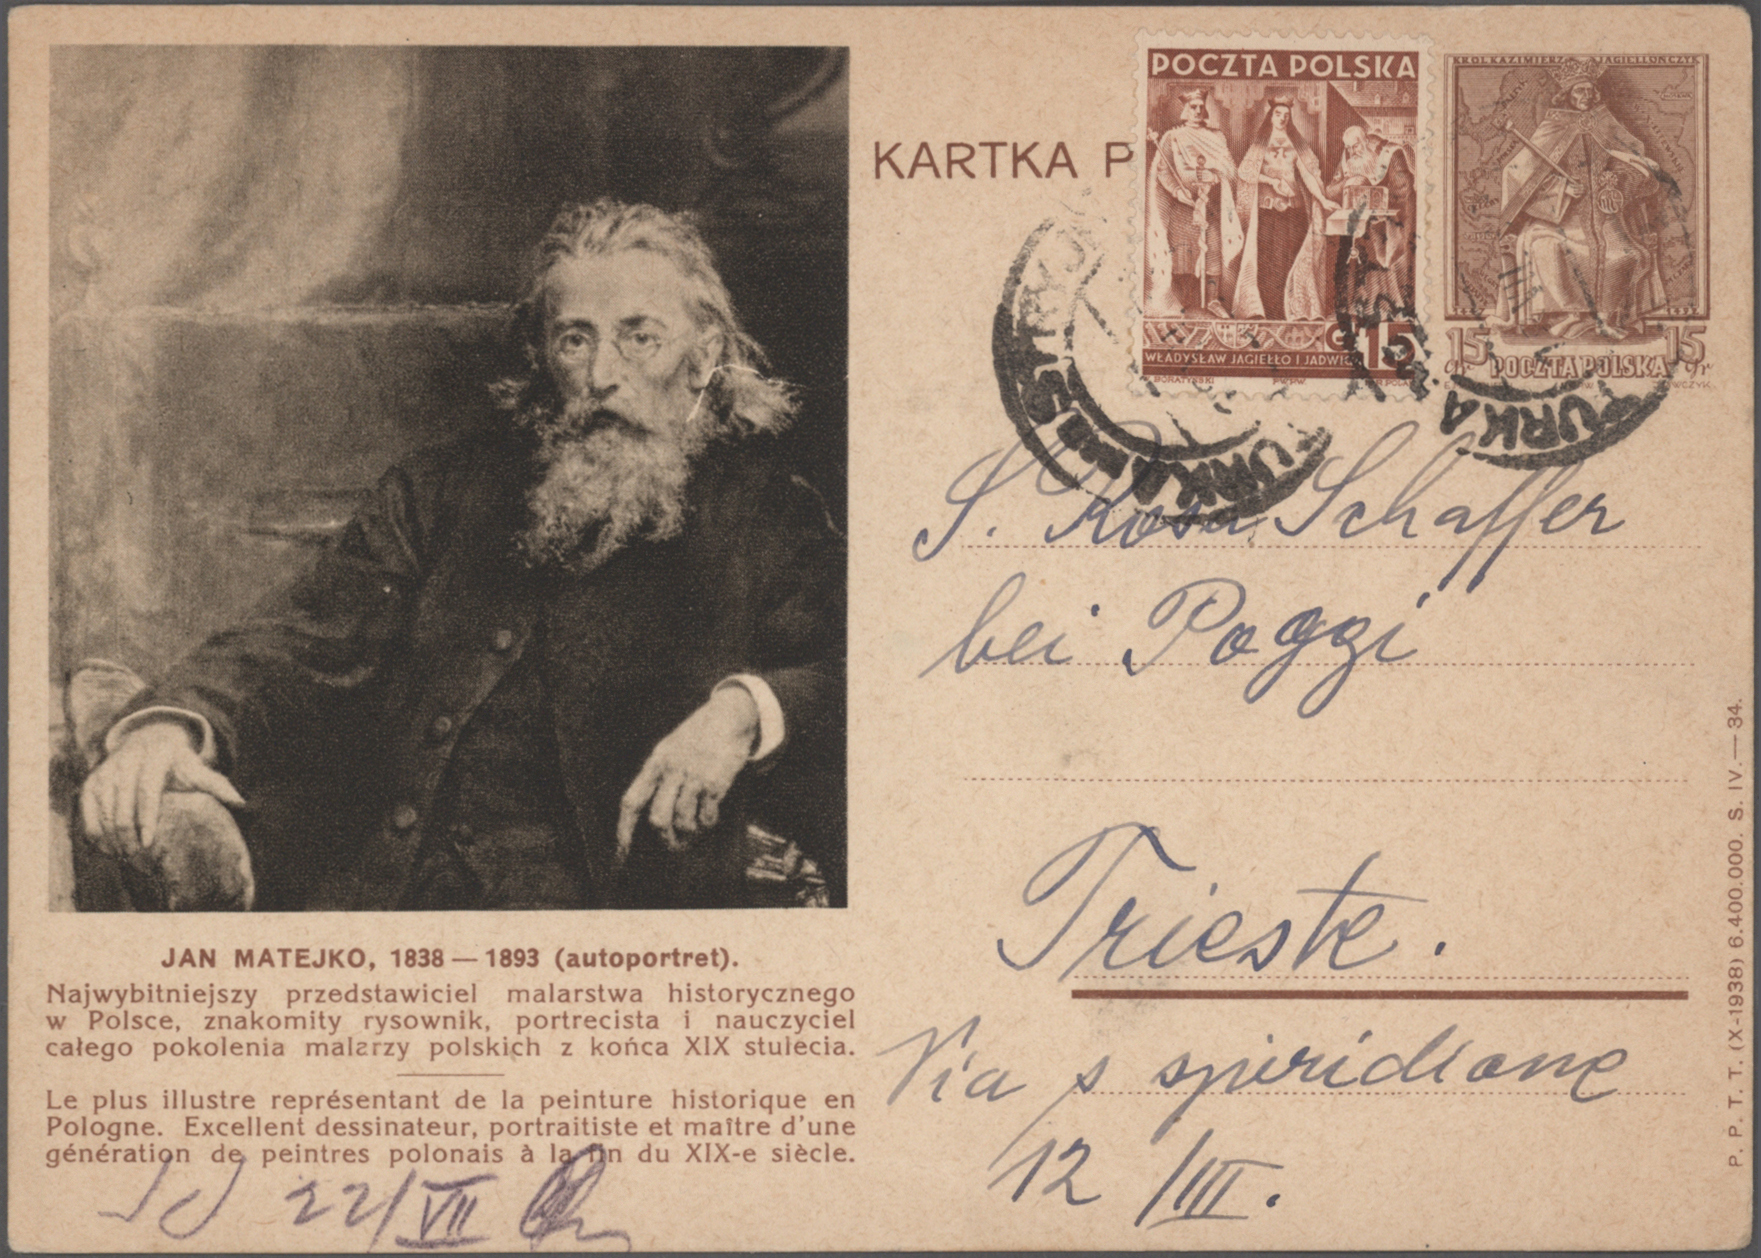 JAN MATEJKO, 1838 — 1893 (autoportret).
Najwybitniejszy przedstawiciel malarstwa historycznego
w Polsce, znakomity rysownik, portrecista i nauczyciel
całego pokolenia malarzy polskich z końca XIX stulecia.
Le plus illustre représentant de la peinture historique en
Pologne. Excellent dessinateur, portraitiste et maître d'une
génération de peintres polonais à la fin du XIX-e siècle.
22/VII
KARTKA P
POCZTA POLSKA
WŁADYSŁAW JAGIEŁŁO I JADWIGA
15
KRÓL KAZIMIERZ JAGIELLOŃCZYK
15 15
gr POCZTA POLSKA gr
TURKA
TURKA
S. Rosa Schaffer
bei Poggi
Trieste.
Via s spiridione
12 /III.
P. P. T. T. (X-1938) 6.400.000. S. IV.— 34.